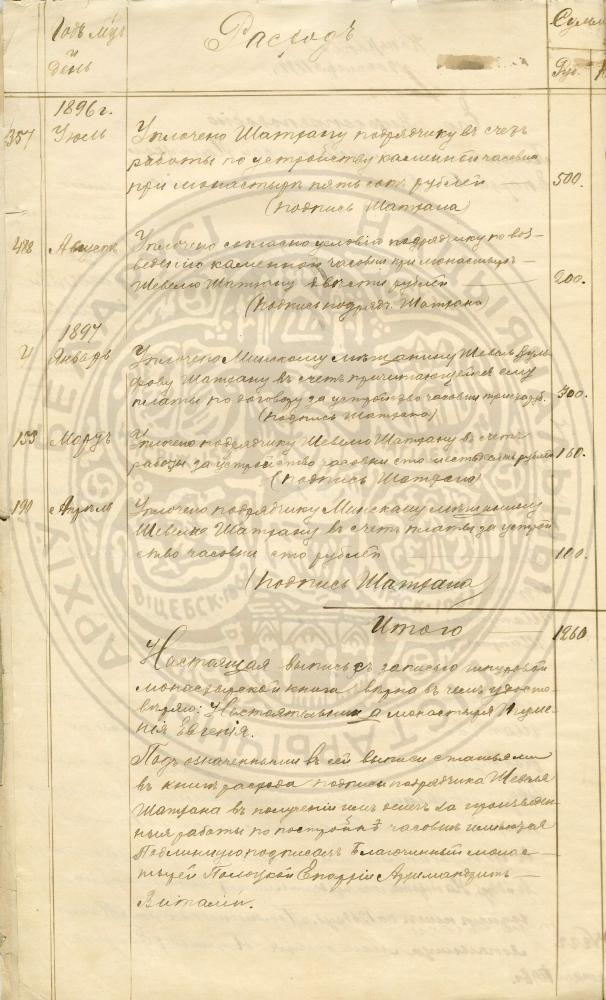 Годъ М-цъ
и
день
Расходъ
Сумма
Руб.
К
1896 г.
357 Іюль Уплочено Шатрану подрядчику въ счетъ
работы по устройству каменной часовни
при монастырѣ пять сотъ рублей 500.
(подпись Шатрана)
488 Августъ Уплочено согласно условію подрядчику по воз-
веденію каменной часовни при монастырѣ
Шевелю Шатрану двѣсти рублей 200.
(подпись подряд. Шатрана
1897
Январь Уплочено Минскому мѣщанину Шевелю
Шатрану въ счетъ причитающейся ему
платы по договору за устройство часовни триста руб. 300.
(подпись Шатрана)
153 Мартъ Уплочено подрядчику Шевелю Шатрану въ счетъ
работы за устройство часовни сто шестьдесятъ рублей 160.
(подпись Шатрана)
190 Апрѣль Уплочено подрядчику Минскому мѣщанину
Шевелю Шатрану въ счетъ платы за устрой
ство часовни сто рублей 100.
(подпись Шатрана
Итого 1260
Настоящая выпись съ записью шнуровой
монастырской книги вѣрна въ чемъ удосто
вѣряю: Настоятельница монастыря Игуме
нія Евгенія.
Подъ означенными въ сей выписи статьями
въ книгѣ расхода подписи подрядчика Шевеля
Шатрана въ полученіи имъ денегъ за произведен
ныя работы по постройкѣ часовни имѣются
Подлинную подписалъ Благочинный монас
тырей Полоцкой Епархіи Архимандритъ
Виталій.